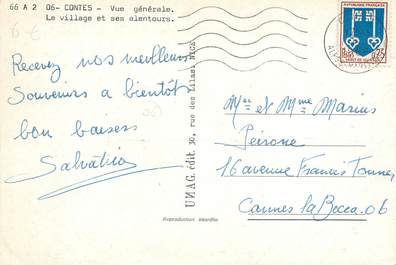 66 A 2   06- CONTES - Vue générale.
Le village et ses alentours.
REPUBLIQUE FRANÇAISE
0,25
Recevez nos meilleurs
Souvenirs a bientôt
bon baisers
UMAG. édit. 30, rue des Lilas NICE
Mr et Mme Marius
Peirone
16 avenue Francis Tonner
Cannes la Bocca. 06
Reproduction interdite